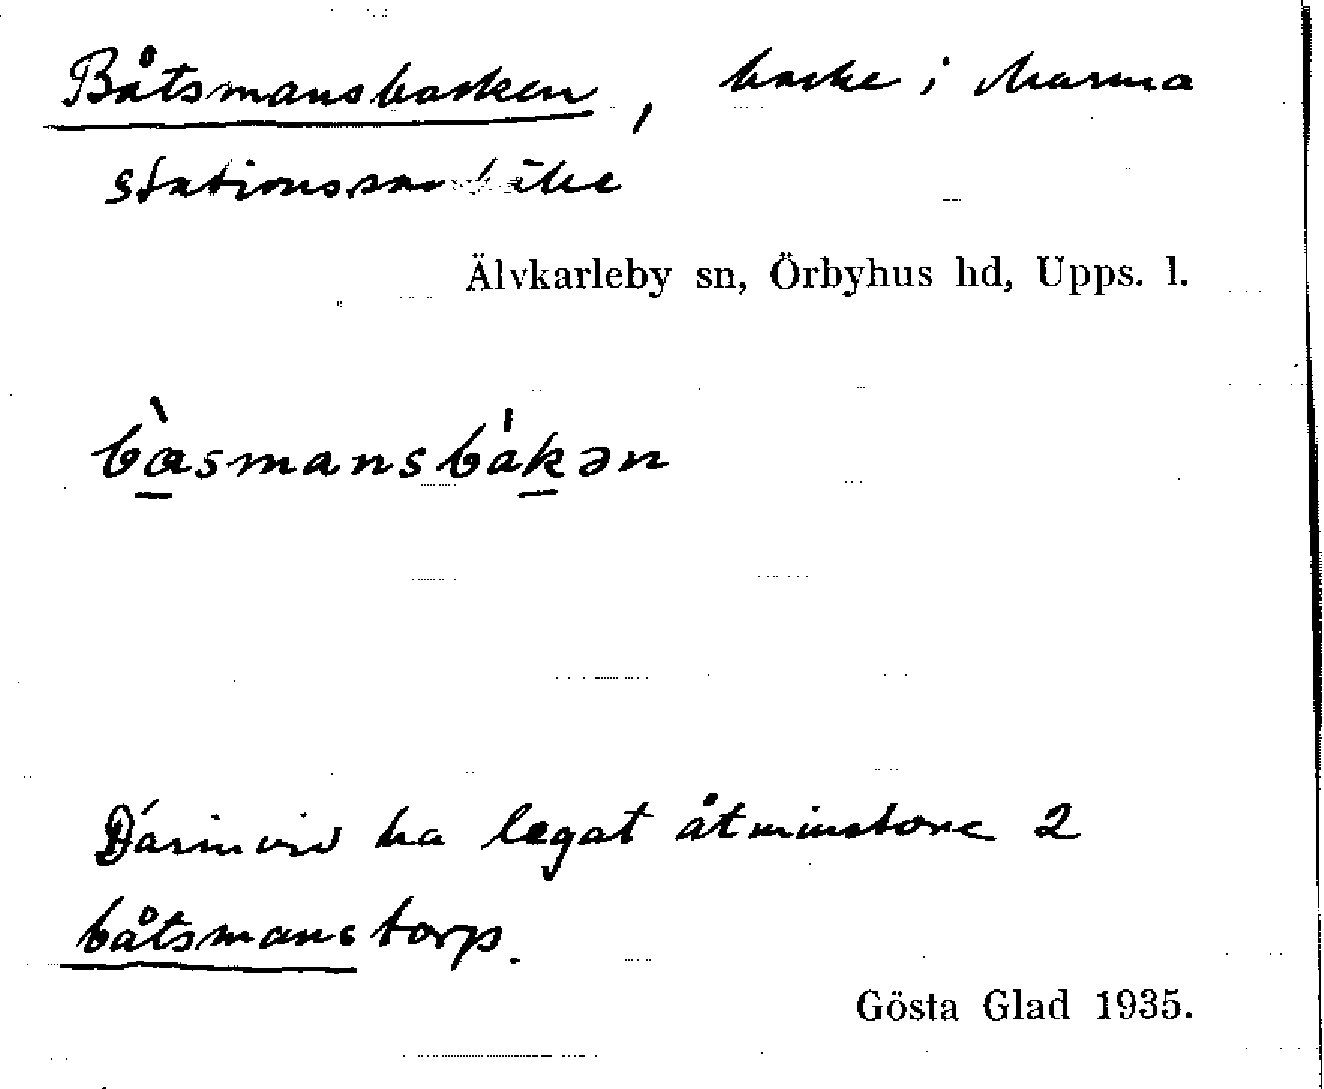 Båtsmansbacken, backe i Marma
stationssamhälle
Älvkarleby sn, Örbyhus hd, Upps. l.
bàsmansbákən
Därinvid ha legat åtminstone 2
båtsmanstorp.
Gösta Glad 1935.